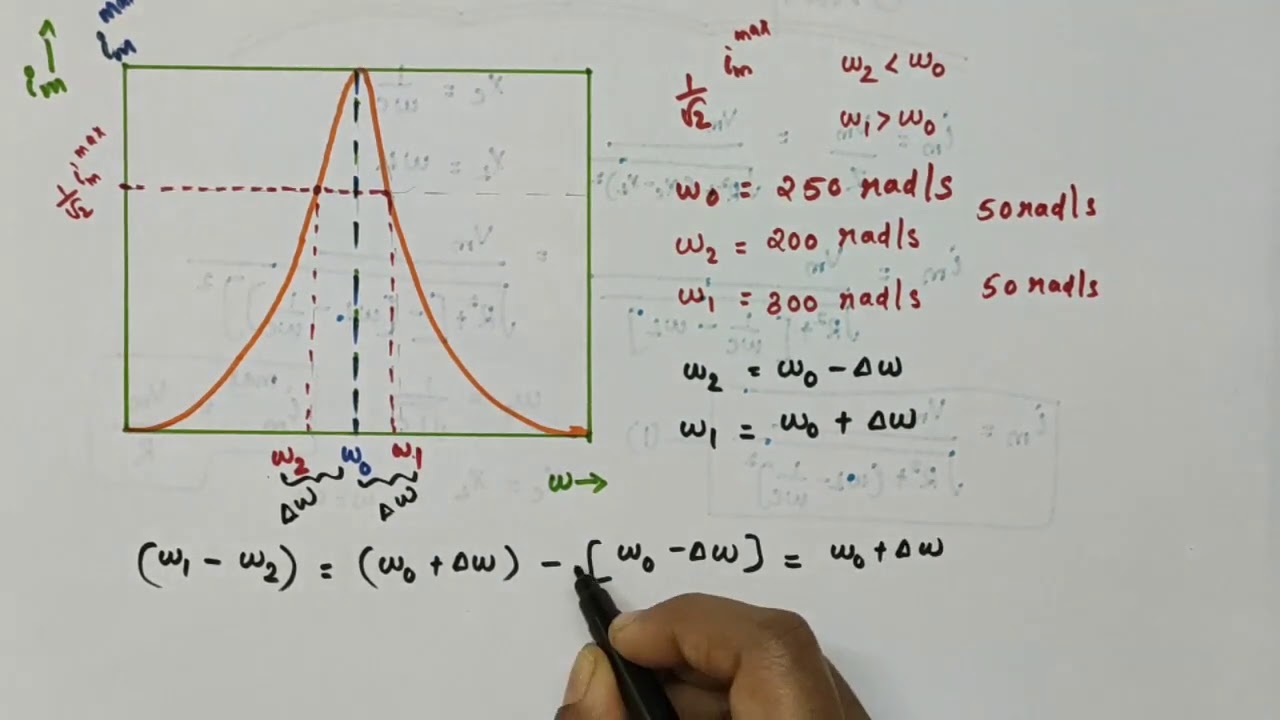 i_m^max
i_m
1/√2 i_m^max
ω₂ ω₀ ω₁
Δω Δω
ω→
1/√2 i_m^max
ω₂ < ω₀
ω₁ > ω₀
ω₀ = 250 rad/s 50 rad/s
ω₂ = 200 rad/s
ω₁ = 300 rad/s 50 rad/s
ω₂ = ω₀ - Δω
ω₁ = ω₀ + Δω
(ω₁ - ω₂) = (ω₀ + Δω) - [ω₀ - Δω] = ω₀ + Δω